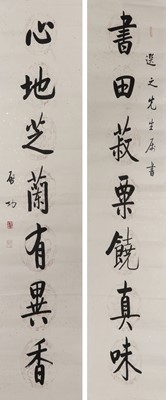 書田菽粟饒真味
選之先生屬書
心地芝蘭有異香
啟功